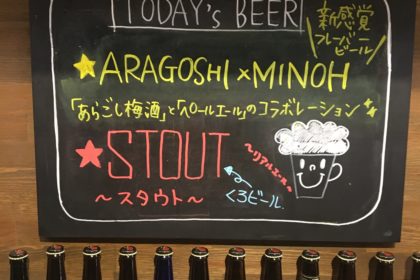 TODAY's BEER
新感覚
フレーバー
ビール
★ARAGOSHI×MINOH
「あらごし梅酒」と「ペールエール」のコラボレーション
★STOUT
～リアルエール～
～スタウト～
くろビール.